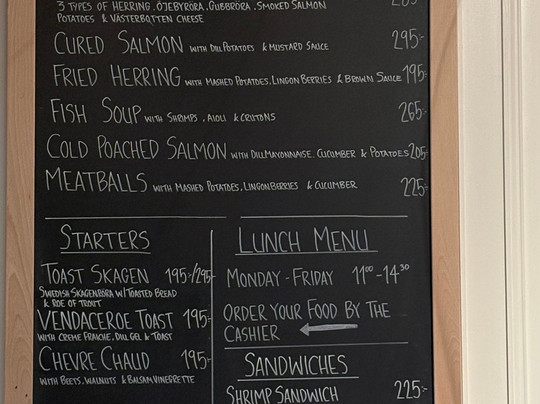 3 TYPES OF HERRING, ÖJEBYRÖRA, GUBBRÖRA, SMOKED SALMON
POTATOES & VÄSTERBOTTEN CHEESE
CURED SALMON WITH DILL POTATOES & MUSTARD SAUCE 295:-
FRIED HERRING WITH MASHED POTATOES, LINGON BERRIES & BROWN SAUCE 195:-
FISH SOUP WITH SHRIMPS, AIOLI & CRUTONS 265:-
COLD POACHED SALMON WITH DILLMAYONNAISE, CUCUMBER & POTATOES 205:-
MEATBALLS WITH MASHED POTATOES, LINGONBERRIES & CUCUMBER 225:-
STARTERS
TOAST SKAGEN 195:-/295:-
SWEDISH SKAGENRÖRA W/ TOASTED BREAD
& ROE OF TROUT
VENDACEROE TOAST 195:-
WITH CREME FRAICHE, DILL GEL & TOAST
CHEVRE CHAUD 195:-
WITH BEETS, WALNUTS & BALSAMVINEGRETTE
LUNCH MENU
MONDAY - FRIDAY 11⁰⁰ - 14³⁰
ORDER YOUR FOOD BY THE
CASHIER
SANDWICHES
SHRIMP SANDWICH 225:-